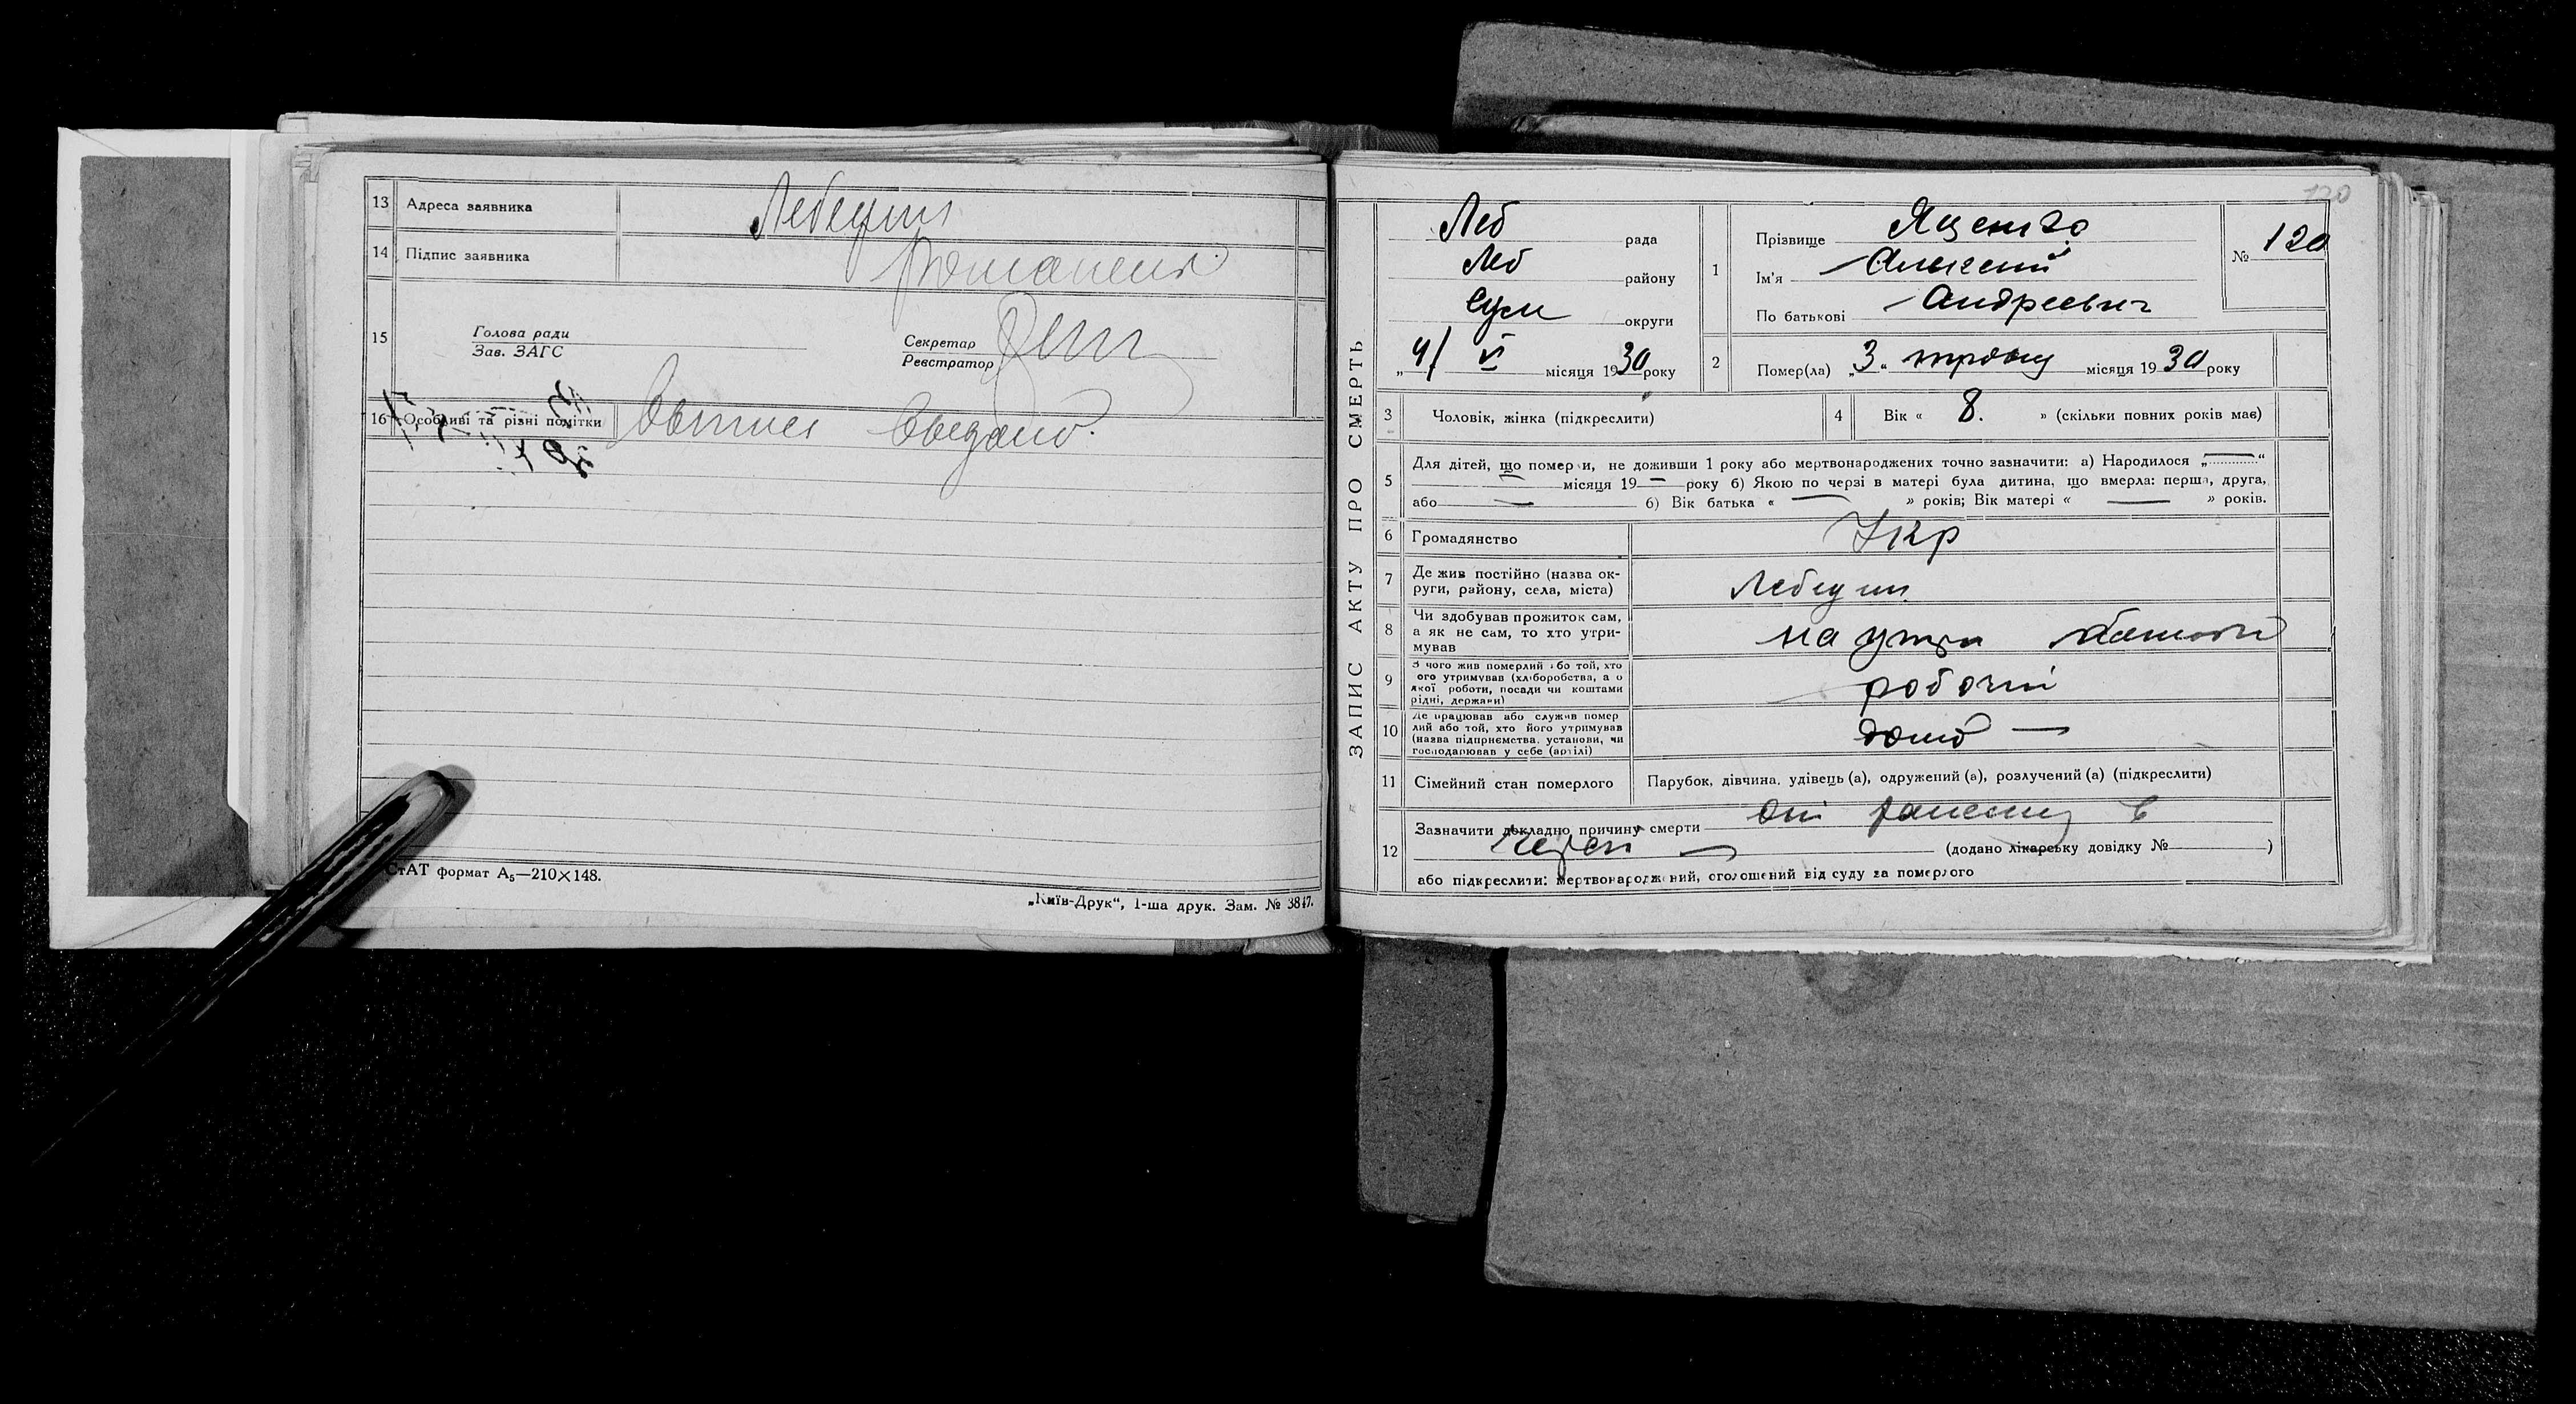 13 Адреса заявника Лебедин
14 Підпис заявника
15 Голова ради
Зав. ЗАГС
Секретар
Реєстратор
16 Особливі та різні помітки Выпись выдано.
СтАТ формат А₅—210×148.
„Київ-Друк“, 1-ша друк. Зам. № 3847.
120
ЗАПИС АКТУ ПРО СМЕРТЬ
Леб рада
Леб району
Сум округи
„4/ VI місяця 1930 року
1 Прізвище Яценко
Ім'я Алексей
По батькові Андреевич
№ 120
2 Помер(ла) „3“ травня місяця 1930 року
3 Чоловік, жінка (підкреслити)
4 Вік « 8. » (скільки повних років має)
5 Для дітей, що померли, не доживши 1 року або мертвонароджених точно зазначити: а) Народилося „—“
— місяця 19 — року б) Якою по черзі в матері була дитина, що вмерла: перша, друга,
або — б) Вік батька « — » років; Вік матері « — » років.
6 Громадянство Укр
7 Де жив постійно (назва ок-
руги, району, села, міста) Лебедин
8 Чи здобував прожиток сам,
а як не сам, то хто утри-
мував на утри батьків
9 З чого жив померлий або той, хто
його утримував (хліборобства, а о
якої роботи, посади чи коштами
рідні, держави) робочий
10 Де працював або служив помер
лий або той, хто його утримував
(назва підприємства, установи, чи
господарював у себе (артілі) дома —
11 Сімейний стан померлого Парубок, дівчина, удівець (а), одружений (а), розлучений (а) (підкреслити)
12 Зазначити докладно причину смерти От ранения в
череп — (додано лікарську довідку № )
або підкреслити: мертвонароджений, оголошений від суду за померлого